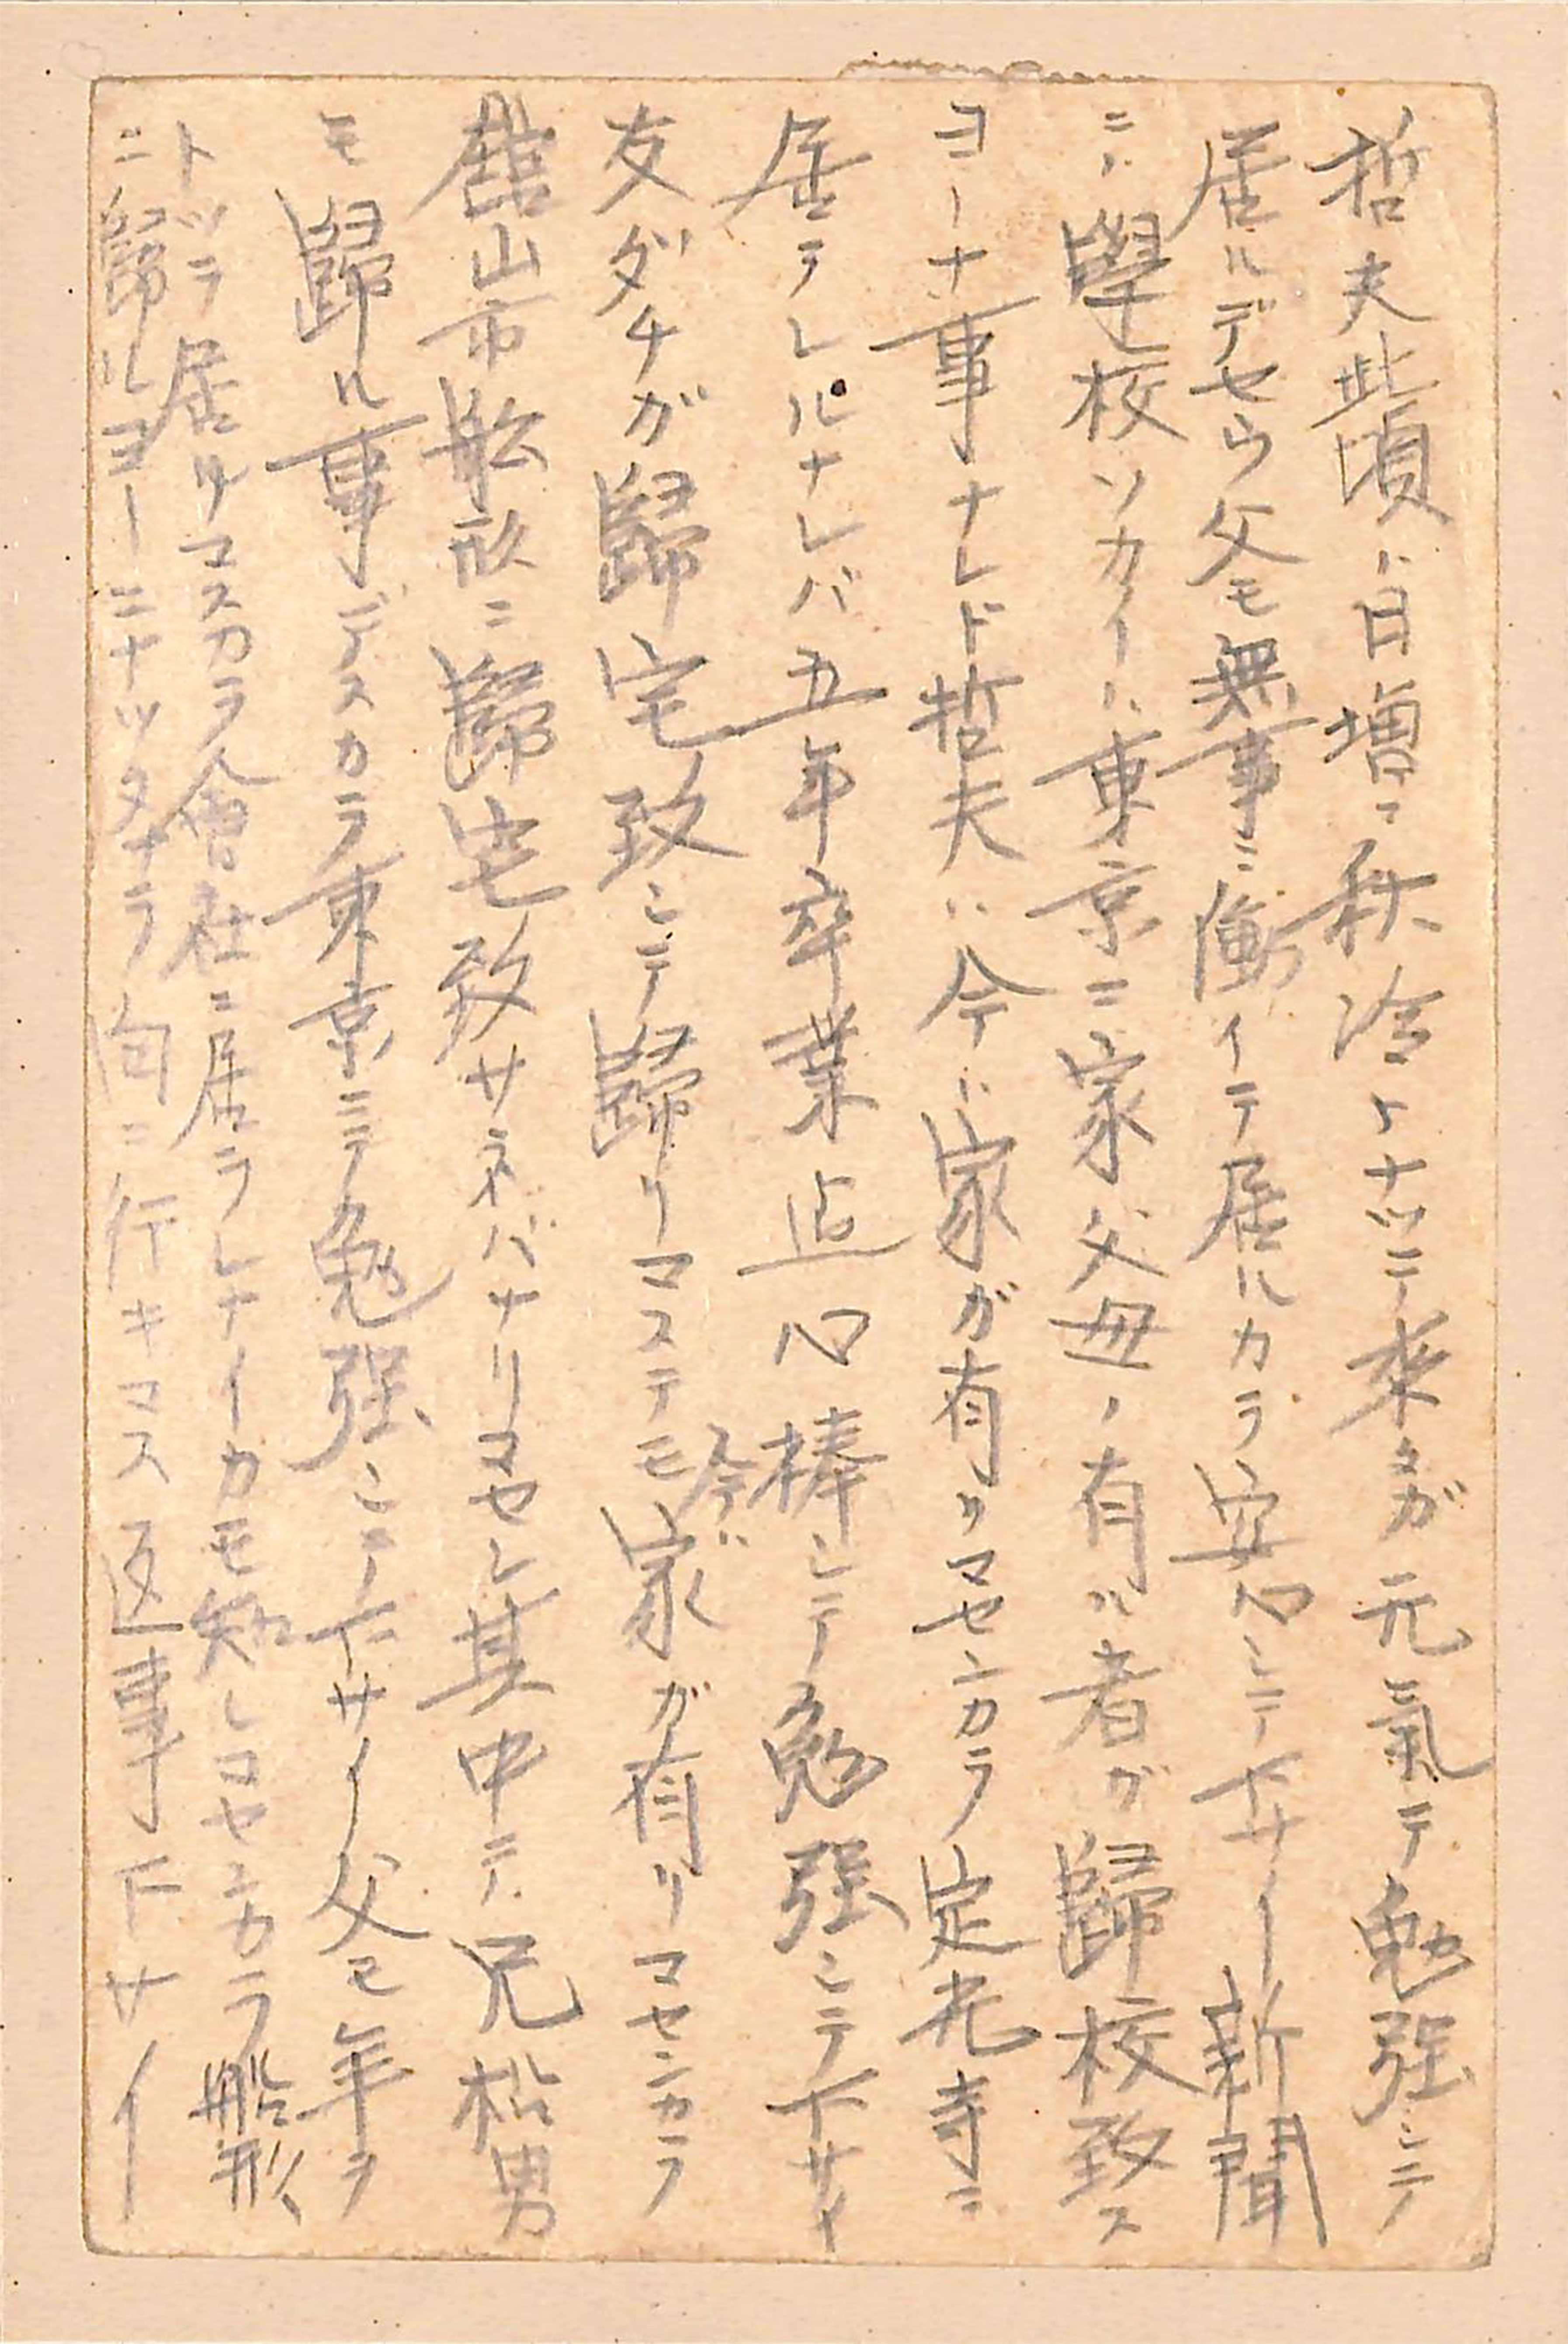 哲夫此頃ハ日増ニ秋冷トナツテ来タガ元氣テ勉强シテ
居ルデセウ父モ無事ニ働イテ居ルカラ安心シテ下サイ新聞
ニハ學校ソカイハ東京ニ家父母ノ有ル者ガ歸校致ス
ヨーナ事ナレド哲夫ハ今ハ家ガ有リマセンカラ定光寺ニ
居テレルナレバ五年卒業迠心棒シテ勉强シテ下サイ
友ダチガ歸宅致シテ歸リマステモ今ハ家ガ有リマセンカラ
舘山市舩形ニ歸宅致サネバナリマセン其中テ兄松男
モ歸ル事デスカラ東京ニテ勉强シテ下サイ父モ年ヲ
トツテ居リマスカラ會社ニ居ラレナイカモ知レマセンカラ船形
ニ歸ルヨーニナツタナラ向ニ行キマス返事下サイ